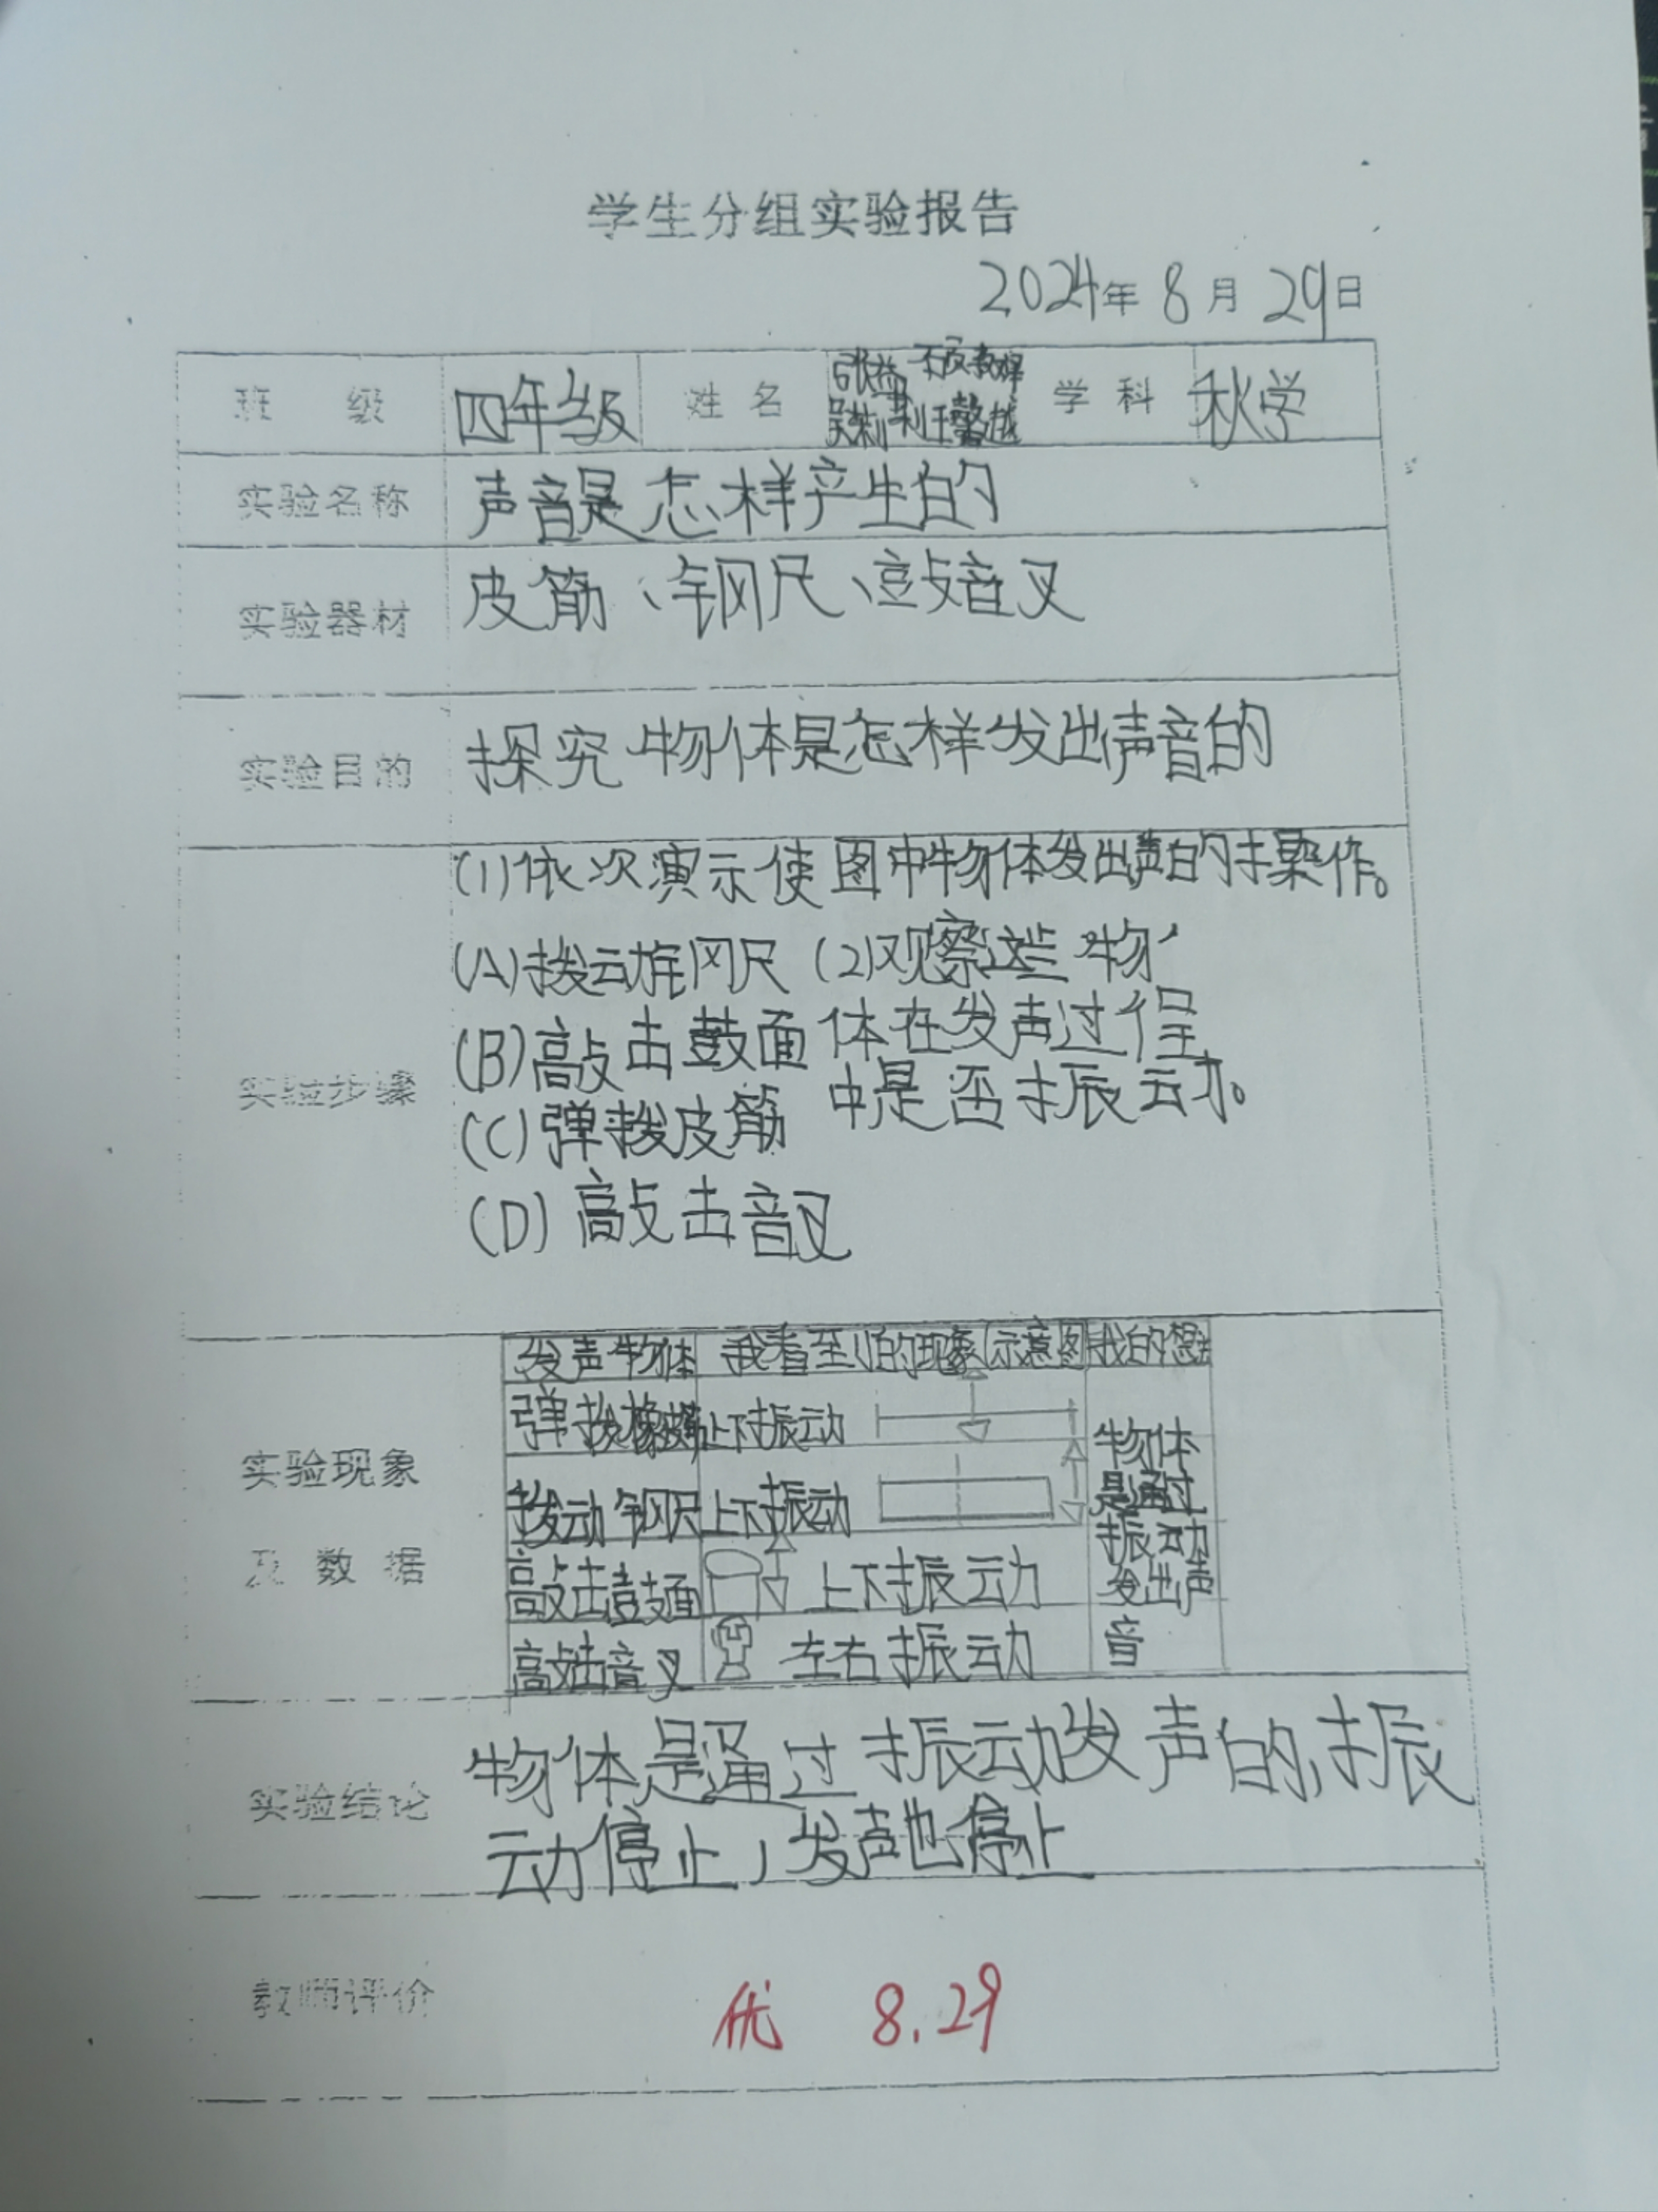 学生分组实验报告
2024年 8月 29日
班 级 四年级 姓 名 学 科 秋学
实验名称 声音是怎样产生的
实验器材 皮筋、钢尺、音叉
实验目的 探究物体是怎样发出声音的
(1)依次演示使图中物体发出声的操作。
(A)拨动钢尺 (2)观察这些物
(B)敲击鼓面 体在发声过程
(C)弹拨皮筋 中是否振动。
实验步骤
(D)敲击音叉
发声物体 我看到的现象(示意图 我的想法
弹拨橡皮筋 上下振动
实验现象
及 数 据
拨动钢尺 上下振动
敲击鼓面 上下振动
敲击音叉 左右振动
物体
是通过
振动
发出声
音
实验结论
物体是通过振动发声的,振
动停止,发声也停止
教师评价 优 8.29